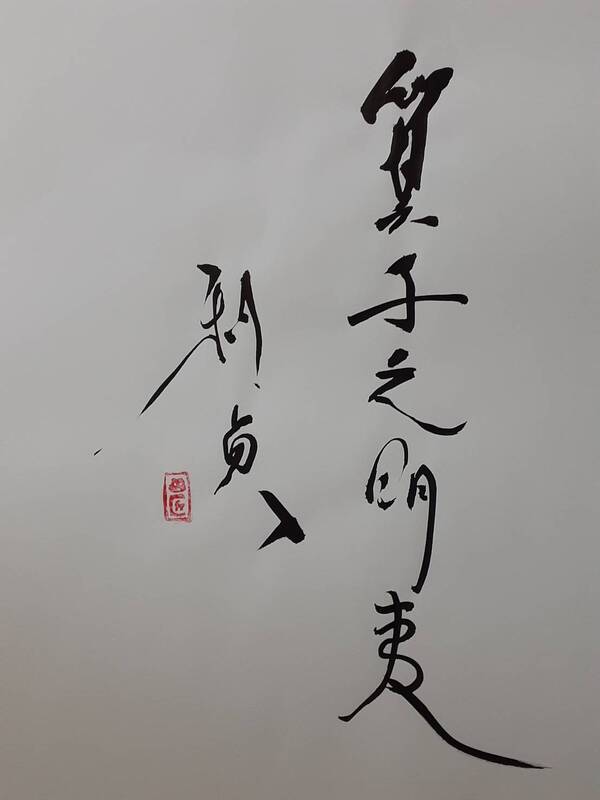 箕子之明夷
利貞